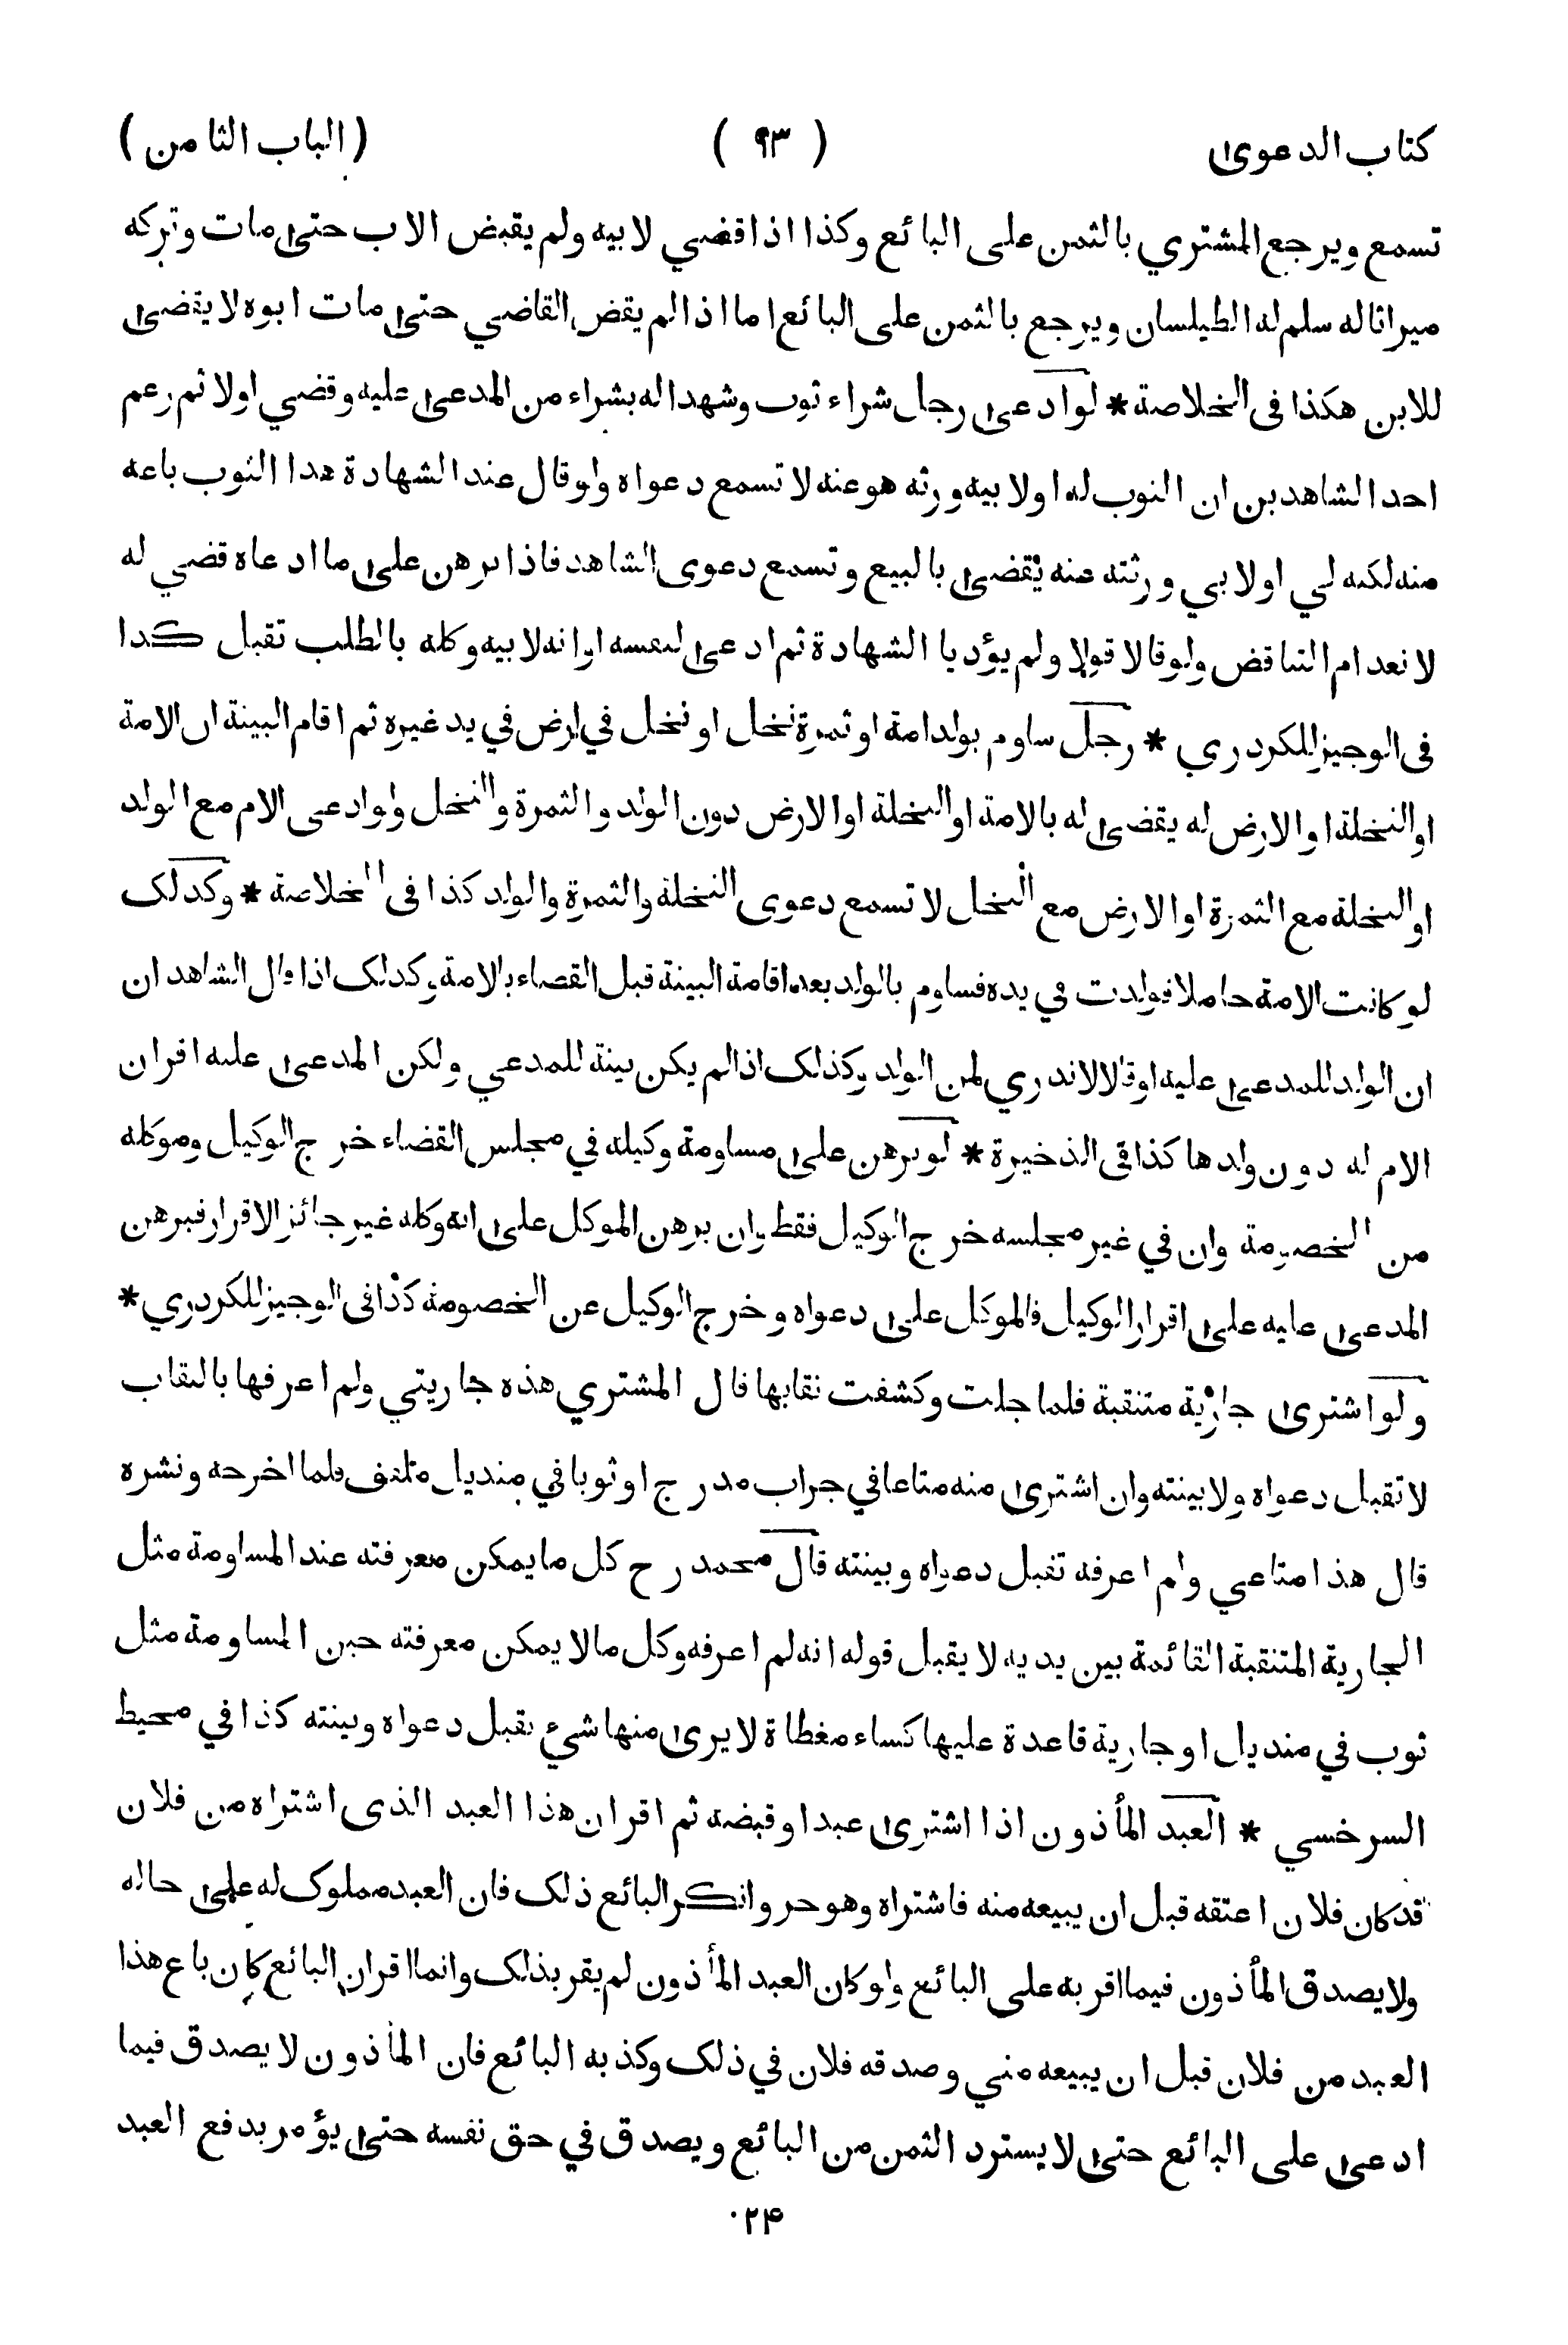 كتاب الدعوى ( ٩٣ ) (الباب الثامن)
تسمع ويرجع المشتري بالثمن على البائع وكذا اذا قضي لابيه ولم يقبض الاب حتى مات وتركه
ميراثا له سلم له الطيلسان ويرجع بالثمن على البائع اما اذا لم يقض القاضي حتى مات ابوه لا يقضى
للابن هكذا فى الخلاصة * لو ادعى رجل شراء ثوب وشهدا له بشراء من المدعى عليه وقضي اولا ثم زعم
احد الشاهدين ان الثوب له او لابيه ورثه هو عنه لا تسمع دعواه ولو قال عند الشهادة هذا الثوب باعه
منه لكنه لي او لابي ورثته عنه يقضى بالبيع وتسمع دعوى الشاهد فاذا برهن على ما ادعاه قضي له
لانعدام التناقض ولو قالا قولا ولم يؤديا الشهادة ثم ادعى لنفسه او انه لابيه وكله بالطلب تقبل كذا
فى الوجيز للكردري * رجل ساوم بولد امة او ثمرة نخل او نخل في ارض في يد غيره ثم اقام البينة ان الامة
او النخلة او الارض له يقضى له بالامة او النخلة او الارض دون الولد والثمرة والنخل ولو ادعى الام مع الولد
او النخلة مع الثمرة او الارض مع النخل لا تسمع دعوى النخلة والثمرة والولد كذا فى الخلاصة * وكذلك
لو كانت الامة حاملا فولدت في يده فساوم بالولد بعد اقامة البينة قبل القضاء بالامة وكذلك اذا قال الشاهدان
ان الولد للمدعى عليه او قالا لا ندري لمن الولد وكذلك اذا لم يكن بينة للمدعي ولكن المدعى عليه اقر ان
الام له دون ولدها كذا فى الذخيرة * لو برهن على مساومة وكيله في مجلس القضاء خرج الوكيل وموكله
من الخصومة وان في غير مجلسه خرج الوكيل فقط وان برهن الموكل على انه وكله غير جائز الاقرار فبرهن
المدعى عليه على اقرار الوكيل فالموكل على دعواه وخرج الوكيل عن الخصومة كذا فى الوجيز للكردري *
ولو اشترى جارية متنقبة فلما جلت وكشفت نقابها قال المشتري هذه جاريتي ولم اعرفها بالنقاب
لا تقبل دعواه ولا بينته وان اشترى منه متاعا في جراب مدرج او ثوبا في منديل ملتف فلما اخرجه ونشره
قال هذا متاعي ولم اعرفه تقبل دعواه وبينته قال محمد رح كل ما يمكن معرفته عند المساومة مثل
الجارية المتنقبة القائمة بين يديه لا يقبل قوله انه لم اعرفه وكل ما لا يمكن معرفته حين المساومة مثل
ثوب في منديل او جارية قاعدة عليها كساء مغطاة لا يرى منها شيء يقبل دعواه وبينته كذا في محيط
السرخسي * العبد المأذون اذا اشترى عبدا وقبضه ثم اقر ان هذا العبد الذى اشتراه من فلان
قد كان فلان اعتقه قبل ان يبيعه منه فاشتراه وهو حر وانكر البائع ذلك فان العبد مملوك له على حاله
ولا يصدق المأذون فيما اقر به على البائع ولو كان العبد المأذون لم يقر بذلك وانما اقر ان البائع كان باع هذا
العبد من فلان قبل ان يبيعه مني وصدقه فلان في ذلك وكذبه البائع فان المأذون لا يصدق فيما
ادعى على البائع حتى لا يسترد الثمن من البائع ويصدق في حق نفسه حتى يؤمر بدفع العبد
٠٢۴